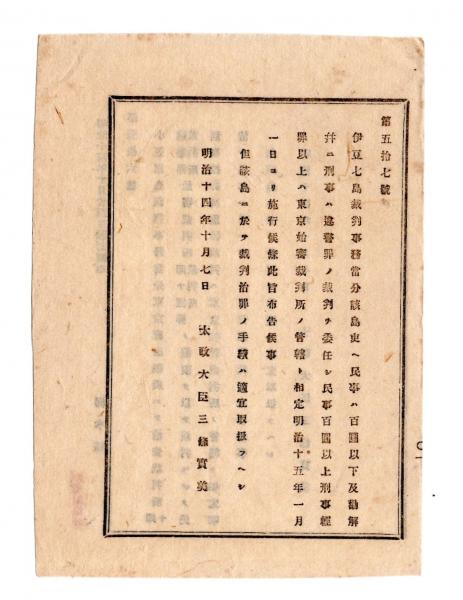 第五拾七號
伊豆七島裁判事務當分該島吏ヘ民事ハ百圓以下及勸解
幷ニ刑事ハ違警罪ノ裁判ヲ委任シ民事百圓以上刑事輕
罪以上ハ東京始審裁判所ノ管轄ト相定明治十五年一月
一日ヨリ施行候條此旨布告候事
但該島ニ於テ裁判治罪ノ手續ハ適宜取扱フヘシ
明治十四年十月七日
太政大臣三條實美